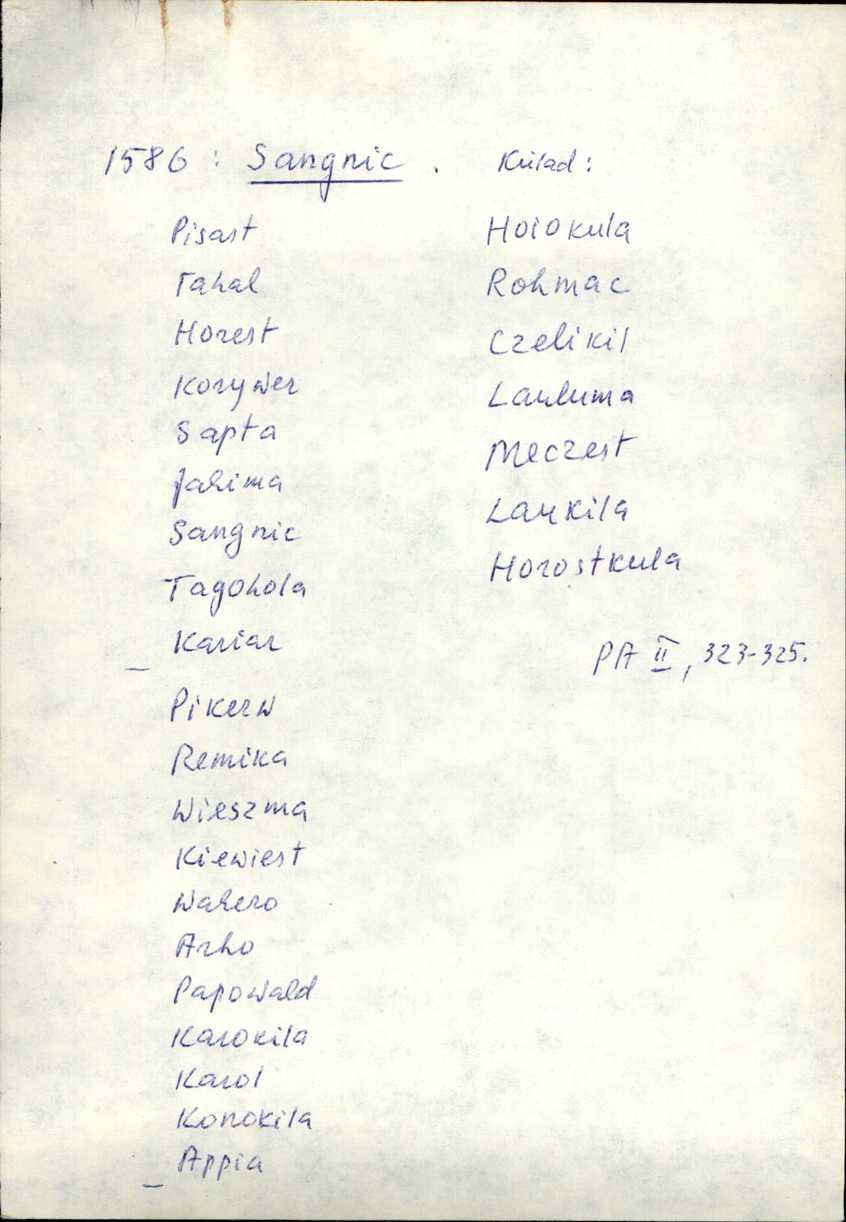 1586 : Sangnic . Külad :
Pisast
Tahal
Horest
Korywer
Sapta
Jahima
Sangnic
Tagohola
Kariar
Pikerw
Remika
Wieszma
Kiewiest
Wahero
Arho
Papowald
Karokila
Karol
Konokila
Appia
Holokula
Rohmac
Czelikil
Lauluma
Meczest
Laukila
Horostkula
PA II, 323-325.